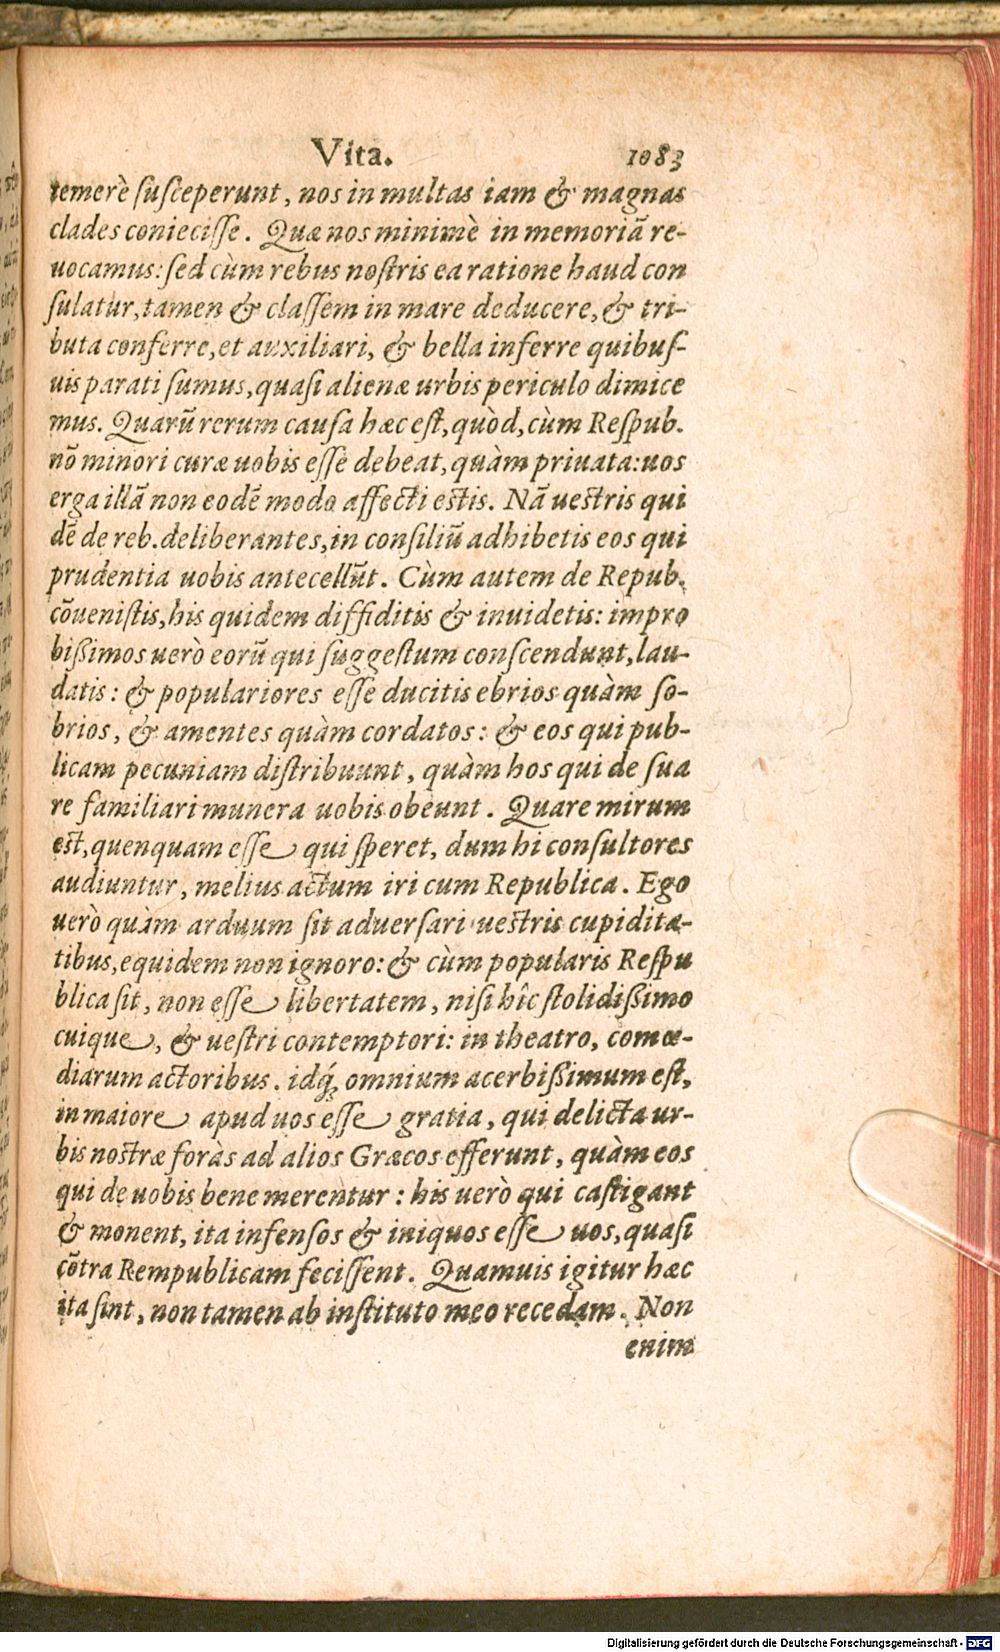 Vita. 1083
temerè susceperunt, nos in multas iam & magnas
clades coniecisse. Quæ nos minimè in memoriã re-
uocamus: sed cùm rebus nostris ea ratione haud con
sulatur, tamen & classem in mare deducere, & tri-
buta conferre, et auxiliari, & bella inferre quibus-
uis parati sumus, quasi alienæ urbis periculo dimice
mus. Quarũ rerum causa hæc est, quòd, cùm Respub.
nõ minori curæ uobis esse debeat, quàm priuata: uos
erga illã non eodẽ modo affecti estis. Nã uestris qui
dẽ de reb. deliberantes, in consiliũ adhibetis eos qui
prudentia uobis antecellũt. Cùm autem de Repub.
cõuenistis, his quidem diffiditis & inuidetis: impro
bißimos uerò eorũ qui suggestum conscendunt, lau-
datis: & populariores esse ducitis ebrios quàm so-
brios, & amentes quàm cordatos: & eos qui pub-
licam pecuniam distribuunt, quàm hos qui de sua
re familiari munera uobis obeunt. Quare mirum
est, quenquam esse qui speret, dum hi consultores
audiuntur, melius actum iri cum Republica. Ego
uerò quàm arduum sit aduersari uestris cupidita-
tibus, equidem non ignoro: & cùm popularis Respu
blica sit, non esse libertatem, nisi hîc stolidißimo
cuique, & uestri contemptori: in theatro, comœ-
diarum actoribus. idq́; omnium acerbißimum est,
in maiore apud uos esse gratia, qui delicta ur-
bis nostræ foràs ad alios Græcos efferunt, quàm eos
qui de uobis bene merentur: his uerò qui castigant
& monent, ita infensos & iniquos esse uos, quasi
cõtra Rempublicam fecissent. Quamuis igitur hæc
ita sint, non tamen ab instituto meo recedam. Non
enim
Digitalisierung gefördert durch die Deutsche Forschungsgemeinschaft - DFG